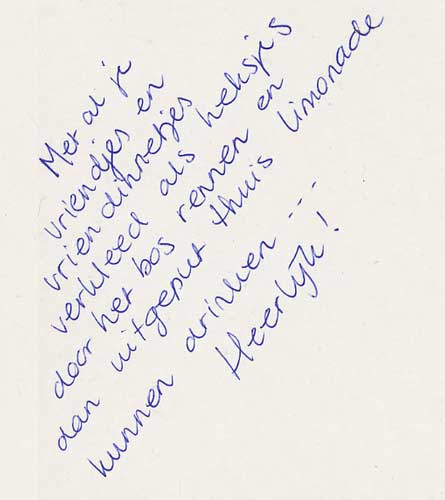 Met al je
vriendjes en
vriendinnetjes
verkleed als heksjes
door het bos rennen en
dan uitgeput thuis limonade
kunnen drinken ...
Heerlijk!